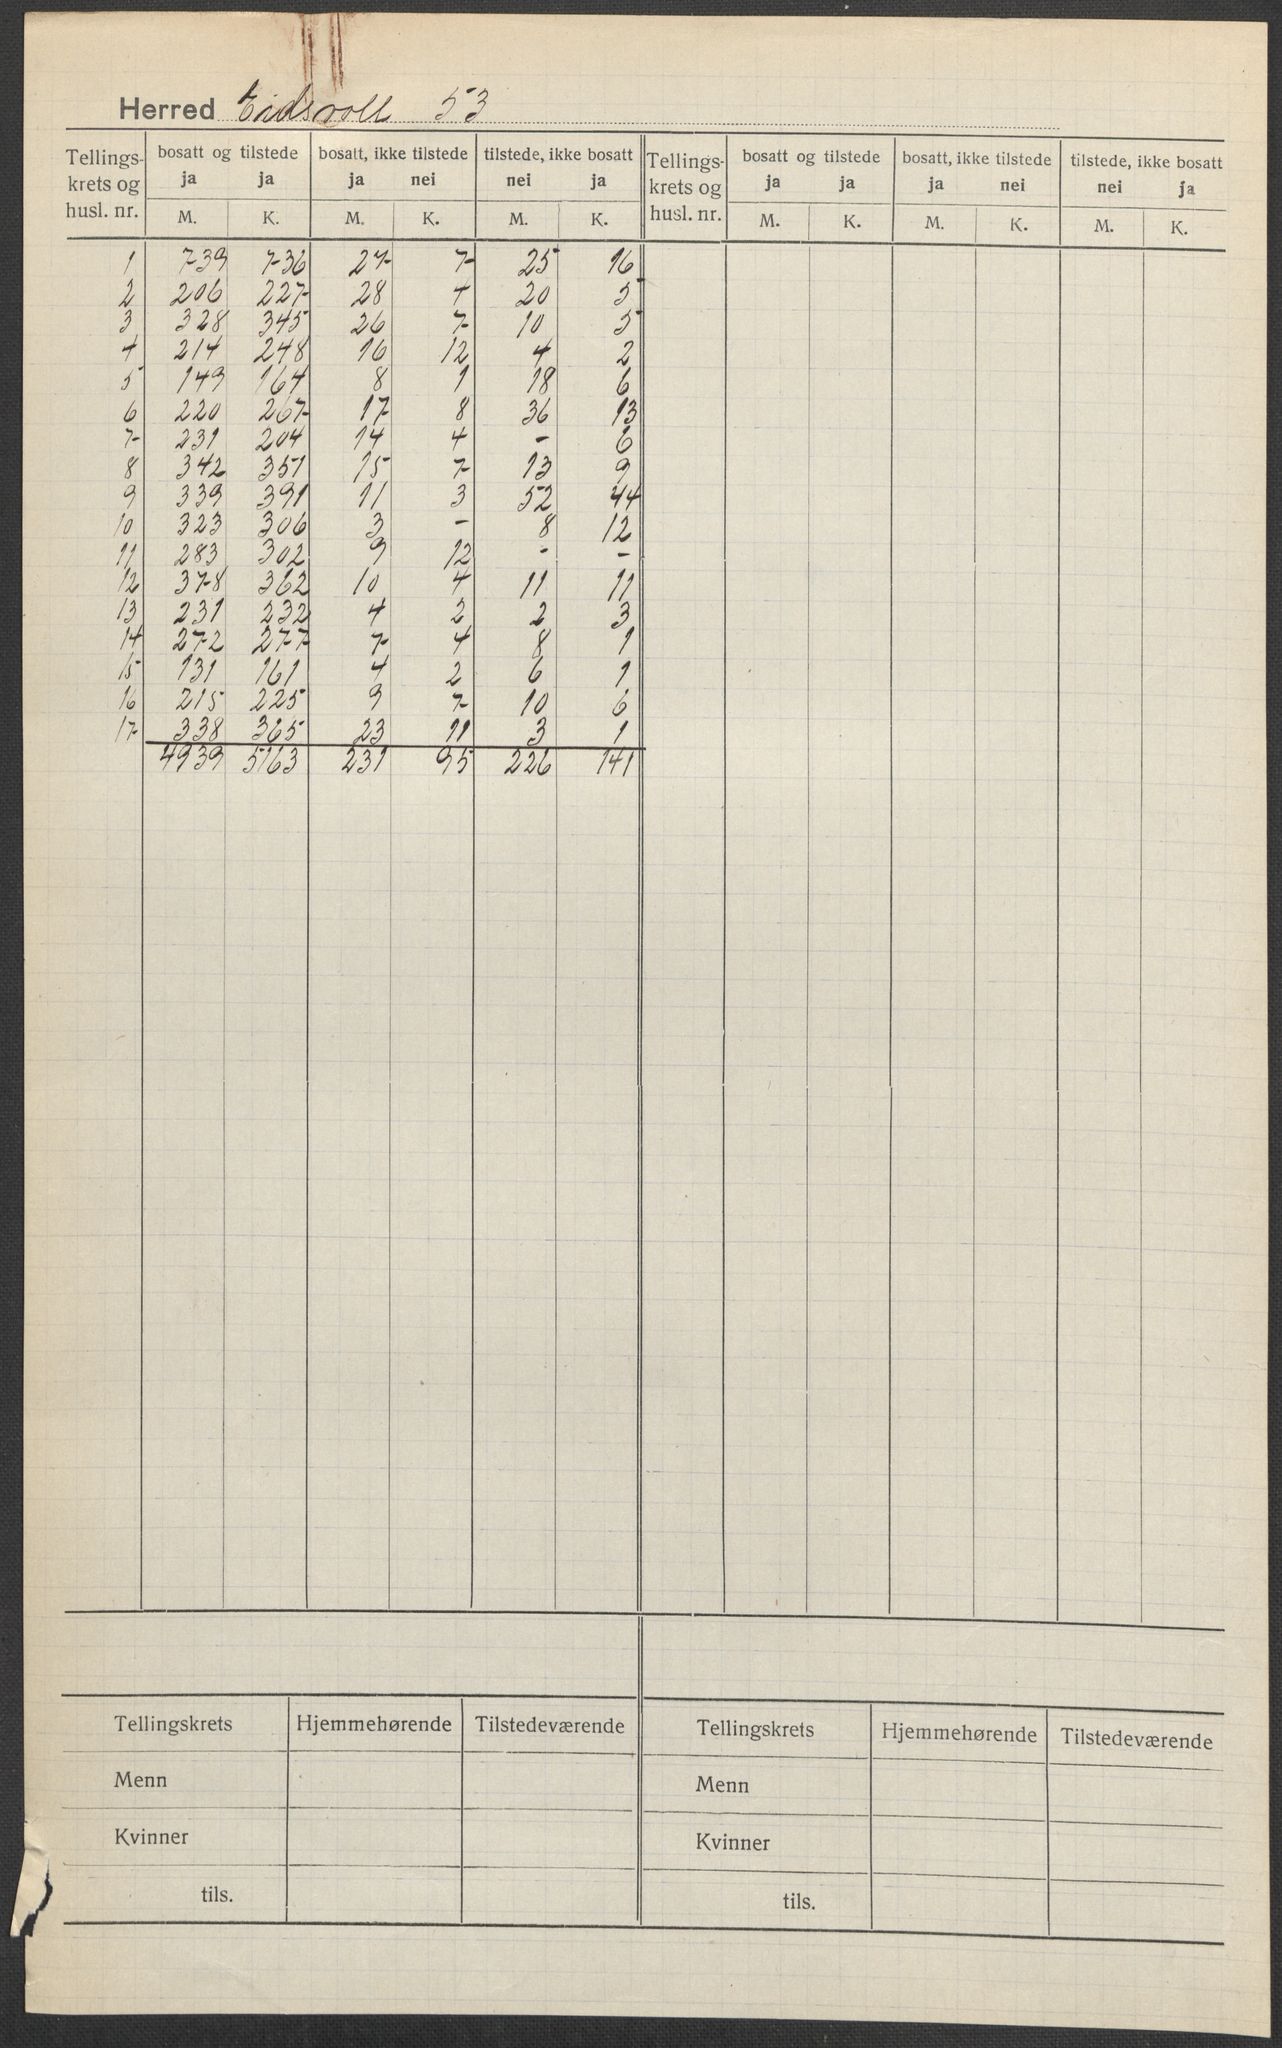 Herred Eidsvoll 53
Tellings- bosatt og tilstede bosatt, ikke tilstede tilstede, ikke bosatt Tellings- bosatt og tilstede bosatt, ikke tilstede tilstede, ikke bosatt
krets og ja ja ja nei nei ja krets og ja ja ja nei nei ja
husl. nr. M. K. M. K. M. K. husl. nr. M. K. M. K. M. K.
1 739 736 27 7 25 16
2 206 227 28 4 20 5
3 328 345 26 7 10 5
4 214 248 16 12 4 2
5 149 164 8 1 18 6
6 220 267 17 8 36 13
7 231 204 14 4 - 6
8 342 351 15 7 13 9
9 339 391 11 3 52 44
10 323 306 3 - 8 12
11 283 302 9 12 - -
12 378 362 10 4 11 11
13 231 232 4 2 2 3
14 272 277 7 4 8 1
15 131 161 4 2 6 1
16 215 225 9 7 10 6
17 338 365 23 11 3 1
4939 5163 231 95 226 141
Tellingskrets Hjemmehørende Tilstedeværende Tellingskrets Hjemmehørende Tilstedeværende
Menn Menn
Kvinner Kvinner
tils. tils.